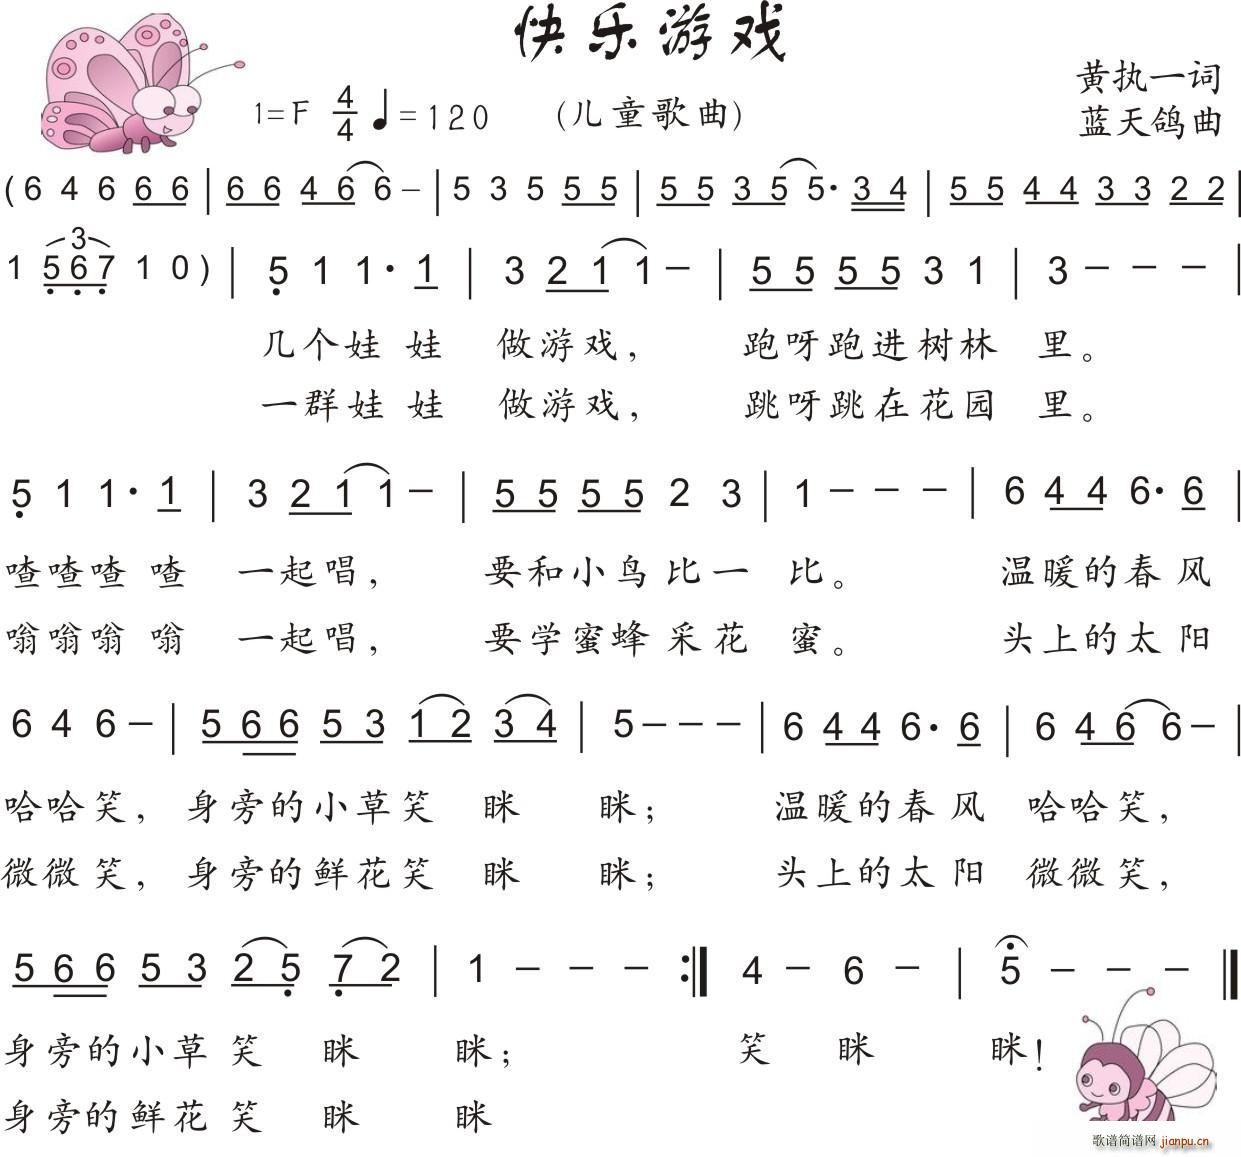 快乐游戏
黄执一词
1=F 4/4 ♩=120 (儿童歌曲)
蓝天鸽曲
(6 4 6 6 6 | 6 6 4 6 6 – | 5 3 5 5 5 | 5 5 3 5 5· 3 4 | 5 5 4 4 3 3 2 2 |
1 5 6 7 1 0) | 5 1 1· 1 | 3 2 1 1 – | 5 5 5 5 3 1 | 3 – – – |
几个娃娃 做游戏, 跑呀跑进树林 里。
一群娃娃 做游戏, 跳呀跳在花园 里。
5 1 1· 1 | 3 2 1 1 – | 5 5 5 5 2 3 | 1 – – – | 6 4 4 6· 6 |
喳喳喳喳 一起唱, 要和小鸟比一 比。 温暖的春风
嗡嗡嗡嗡 一起唱, 要学蜜蜂采花 蜜。 头上的太阳
6 4 6 – | 5 6 6 5 3 1 2 3 4 | 5 – – – | 6 4 4 6· 6 | 6 4 6 6 – |
哈哈笑, 身旁的小草笑 眯 眯; 温暖的春风 哈哈笑,
微微笑, 身旁的鲜花笑 眯 眯; 头上的太阳 微微笑,
5 6 6 5 3 2 5 7 2 | 1 – – – :‖ 4 – 6 – | 5 – – – ‖
身旁的小草笑 眯 眯; 笑 眯 眯!
身旁的鲜花笑 眯 眯
歌谱简谱网 jianpu.cn